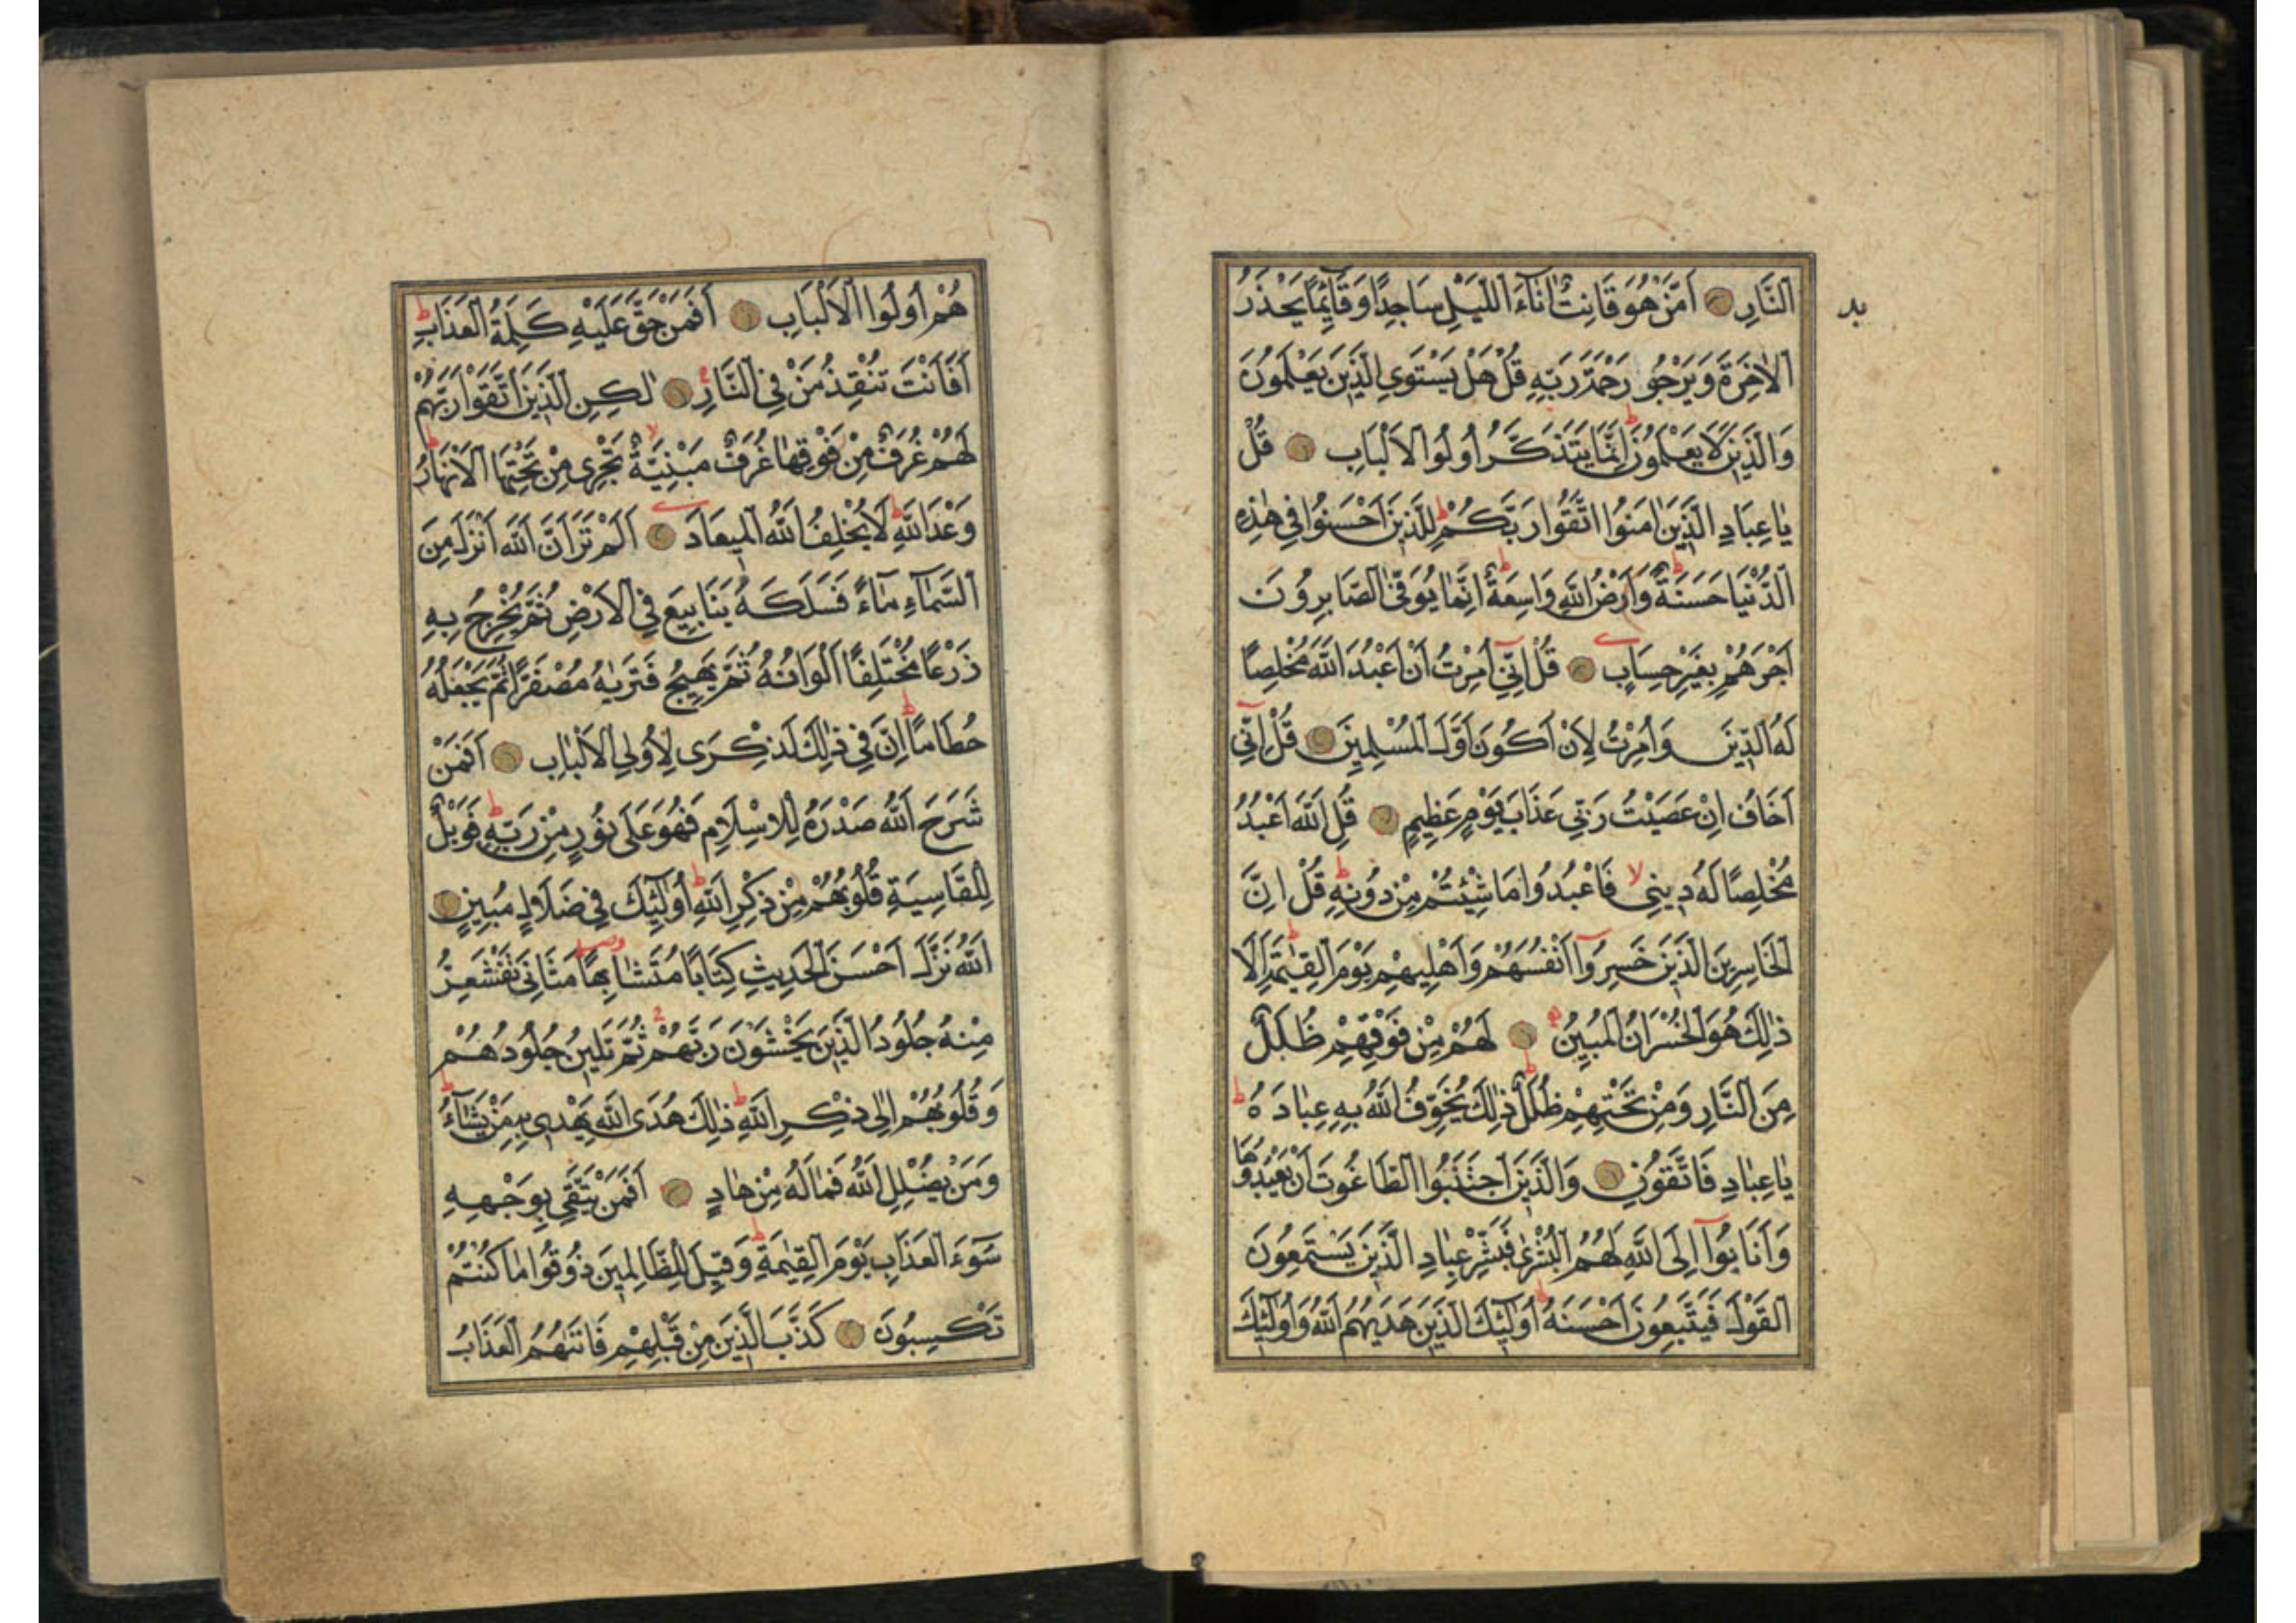 النَّارِ أَمَّنْ هُوَ قَانِتٌ اٰنَاءَ اللَّيْلِ سَاجِدًا وَقَائِمًا يَحْذَرُ
الْاٰخِرَةَ وَيَرْجُو رَحْمَةَ رَبِّهِ قُلْ هَلْ يَسْتَوِي الَّذِينَ يَعْلَمُونَ
وَالَّذِينَ لَا يَعْلَمُونَ ط اِنَّمَا يَتَذَكَّرُ أُولُوا الْاَلْبَابِ قُلْ
يَا عِبَادِ الَّذِينَ اٰمَنُوا اتَّقُوا رَبَّكُمْ ط لِلَّذِينَ اَحْسَنُوا فِي هٰذِهِ
الدُّنْيَا حَسَنَةٌ ط وَاَرْضُ اللّٰهِ وَاسِعَةٌ ط اِنَّمَا يُوَفَّى الصَّابِرُونَ
اَجْرَهُمْ بِغَيْرِ حِسَابٍ قُلْ اِنِّي اُمِرْتُ اَنْ اَعْبُدَ اللّٰهَ مُخْلِصًا
لَهُ الدِّينَ وَاُمِرْتُ لِاَنْ اَكُونَ اَوَّلَ الْمُسْلِمِينَ قُلْ اِنِّي
اَخَافُ اِنْ عَصَيْتُ رَبِّي عَذَابَ يَوْمٍ عَظِيمٍ قُلِ اللّٰهَ اَعْبُدُ
مُخْلِصًا لَهُ دِينِي لا فَاعْبُدُوا مَا شِئْتُمْ مِنْ دُونِهِ ط قُلْ اِنَّ
الْخَاسِرِينَ الَّذِينَ خَسِرُوا اَنْفُسَهُمْ وَاَهْلِيهِمْ يَوْمَ الْقِيٰمَةِ ط اَلَا
ذٰلِكَ هُوَ الْخُسْرَانُ الْمُبِينُ لَهُمْ مِنْ فَوْقِهِمْ ظُلَلٌ
مِنَ النَّارِ وَمِنْ تَحْتِهِمْ ظُلَلٌ ط ذٰلِكَ يُخَوِّفُ اللّٰهُ بِهِ عِبَادَهُ ط
يَا عِبَادِ فَاتَّقُونِ وَالَّذِينَ اجْتَنَبُوا الطَّاغُوتَ اَنْ يَعْبُدُوهَا
وَاَنَابُوا اِلَى اللّٰهِ لَهُمُ الْبُشْرٰى فَبَشِّرْ عِبَادِ الَّذِينَ يَسْتَمِعُونَ
الْقَوْلَ فَيَتَّبِعُونَ اَحْسَنَهُ ط اُولٰئِكَ الَّذِينَ هَدٰيهُمُ اللّٰهُ وَاُولٰئِكَ
هُمْ اُولُوا الْاَلْبَابِ اَفَمَنْ حَقَّ عَلَيْهِ كَلِمَةُ الْعَذَابِ ط
اَفَاَنْتَ تُنْقِذُ مَنْ فِي النَّارِ لٰكِنِ الَّذِينَ اتَّقَوْا رَبَّهُمْ
لَهُمْ غُرَفٌ مِنْ فَوْقِهَا غُرَفٌ مَبْنِيَّةٌ لا تَجْرِي مِنْ تَحْتِهَا الْاَنْهَارُ ط
وَعْدَ اللّٰهِ ط لَا يُخْلِفُ اللّٰهُ الْمِيعَادَ اَلَمْ تَرَ اَنَّ اللّٰهَ اَنْزَلَ مِنَ
السَّمَاءِ مَاءً فَسَلَكَهُ يَنَابِيعَ فِي الْاَرْضِ ثُمَّ يُخْرِجُ بِهِ
زَرْعًا مُخْتَلِفًا اَلْوَانُهُ ثُمَّ يَهِيجُ فَتَرٰيهُ مُصْفَرًّا ثُمَّ يَجْعَلُهُ
حُطَامًا ط اِنَّ فِي ذٰلِكَ لَذِكْرَى لِاُولِي الْاَلْبَابِ اَفَمَنْ
شَرَحَ اللّٰهُ صَدْرَهُ لِلْاِسْلَامِ فَهُوَ عَلَى نُورٍ مِنْ رَبِّهِ ط فَوَيْلٌ
لِلْقَاسِيَةِ قُلُوبُهُمْ مِنْ ذِكْرِ اللّٰهِ ط اُولٰئِكَ فِي ضَلَالٍ مُبِينٍ
اَللّٰهُ نَزَّلَ اَحْسَنَ الْحَدِيثِ كِتَابًا مُتَشَابِهًا مَثَانِيَ تَقْشَعِرُّ
مِنْهُ جُلُودُ الَّذِينَ يَخْشَوْنَ رَبَّهُمْ ثُمَّ تَلِينُ جُلُودُهُمْ
وَقُلُوبُهُمْ اِلٰى ذِكْرِ اللّٰهِ ط ذٰلِكَ هُدَى اللّٰهِ يَهْدِي بِهِ مَنْ يَشَاءُ ط
وَمَنْ يُضْلِلِ اللّٰهُ فَمَا لَهُ مِنْ هَادٍ اَفَمَنْ يَتَّقِي بِوَجْهِهِ
سُوءَ الْعَذَابِ يَوْمَ الْقِيٰمَةِ ط وَقِيلَ لِلظَّالِمِينَ ذُوقُوا مَا كُنْتُمْ
تَكْسِبُونَ كَذَّبَ الَّذِينَ مِنْ قَبْلِهِمْ فَاَتٰيهُمُ الْعَذَابُ